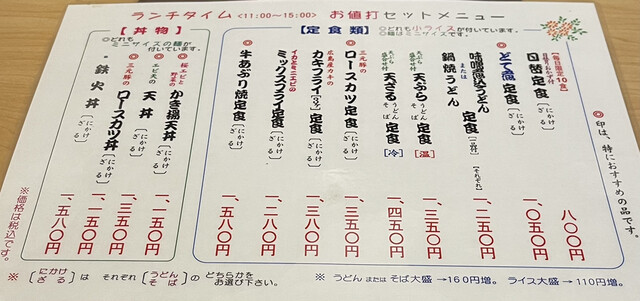 ランチタイム <11:00~15:00> お値打セットメニュー
【定食類】
◎どれもハーライスが付いています。
◎印は、特におすすめの品です。
【毎日限定10食】
日替定食 [にかけ ざる] 八〇〇円
◎どて煮定食 [にかけ ざる] 一、〇五〇円
味噌煮込うどん 定食 [一品付] または 鍋焼うどん [それぞれ] 一、二五〇円
天ぷら うどん そば 定食 [温] 一、三五〇円
天ざる うどん そば 定食 [冷] 一、四五〇円
三元豚の
◎ロースカツ定食 [にかけ ざる] 一、三五〇円
広島産カキの
カキフライ 定食 [にかけ ざる] 一、三八〇円
イカカキエビの
ミックスフライ定食 [にかけ ざる] 一、二八〇円
◎牛あぶり焼定食 [にかけ ざる] 一、五八〇円
【丼物】
◎どれもミニサイズの麺が付いています。
桜エビと野菜の
◎かき揚天丼 [にかけ ざる] 一、一五〇円
エビ天の
天丼 [にかけ ざる] 一、三五〇円
三元豚の
◎ロースカツ丼 [にかけ ざる] 一、一五〇円
・鉄火丼 [にかけ ざる] 一、五八〇円
※価格は税込です。
※ [にかけ ざる] は それぞれ [うどん そば] の どちらかをお選び下さい。
※ うどん または そば大盛 →160円増。 ライス大盛 →110円増。